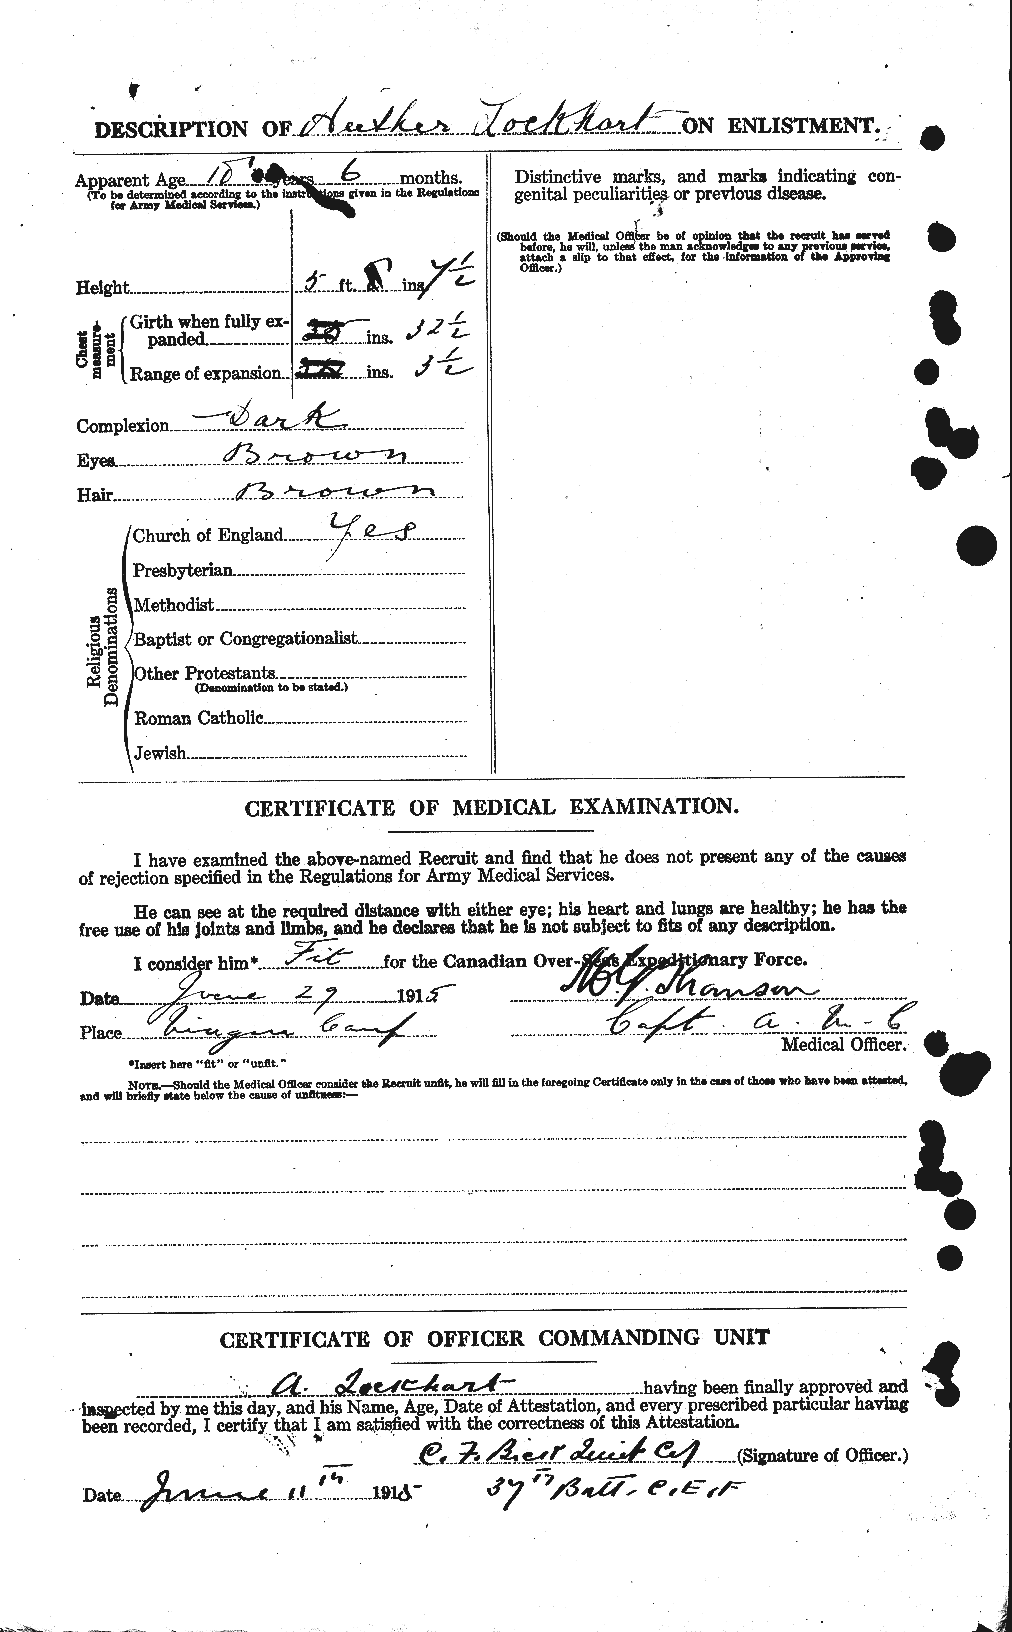 DESCRIPTION OF Auther Lockhart ON ENLISTMENT.
Apparent Age 18 years 6 months.
(To be determined according to the instructions given in the Regulations
for Army Medical Services.)
Height 5 ft. ins. 7 1/2
Chest measure-ment
Girth when fully ex-
panded ins. 32 1/2
Range of expansion ins. 3 1/2
Complexion Dark
Eyes Brown
Hair Brown
Religious Denominations
Church of England Yes
Presbyterian
Methodist
Baptist or Congregationalist
Other Protestants
(Denomination to be stated.)
Roman Catholic
Jewish
Distinctive marks, and marks indicating con-
genital peculiarities or previous disease.
(Should the Medical Officer be of opinion that the recruit has served
before, he will, unless the man acknowledges to any previous service,
attach a slip to that effect, for the information of the Approving
Officer.)
CERTIFICATE OF MEDICAL EXAMINATION.
I have examined the above-named Recruit and find that he does not present any of the causes
of rejection specified in the Regulations for Army Medical Services.
He can see at the required distance with either eye; his heart and lungs are healthy; he has the
free use of his joints and limbs, and he declares that he is not subject to fits of any description.
I consider him* Fit for the Canadian Over-Seas Expeditionary Force.
Date June 29 1915
Place Niagara Camp Capt. A. M. C
Medical Officer.
*Insert here "fit" or "unfit."
NOTE.—Should the Medical Officer consider the Recruit unfit, he will fill in the foregoing Certificate only in the case of those who have been attested,
and will briefly state below the cause of unfitness:—
CERTIFICATE OF OFFICER COMMANDING UNIT
A. Lockhart having been finally approved and
inspected by me this day, and his Name, Age, Date of Attestation, and every prescribed particular having
been recorded, I certify that I am satisfied with the correctness of this Attestation.
C. F. (Signature of Officer.)
Date June 11th 1915 37th Batt. C.E.F